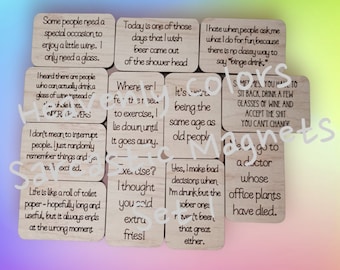 Some people need a
special occasion to
enjoy a little wine. I
only need a glass.
Today is one of those
days that I wish
beer came out
of the shower head
I hate when people ask me
what I do for fun, because
there is no classy way to
say "binge drinking."
I heard there are people
who can actually drink a
glass of wine instead of
the whole
Whenever
I feel the need
to exercise, I
lie down until
it goes away.
It's
being the
same age as
old people
YOU HAVE TO
SIT BACK, DRINK A FEW
GLASSES OF WINE AND
ACCEPT THE SHIT
YOU CAN'T CHANGE
I don't mean to interrupt
people. I just randomly
remember things and
Life is like a roll of toilet
paper - hopefully long and
useful, but it always ends
at the wrong moment
Exercise?
I thought
you said
extra
fries!
Yes, I make bad
decisions when
I'm drunk, but the
sober ones
haven't been
that great
either.
go to
a doctor
whose
office
plants
have died.
Heavenly Colors
Sarcastic Magnets
Set 1